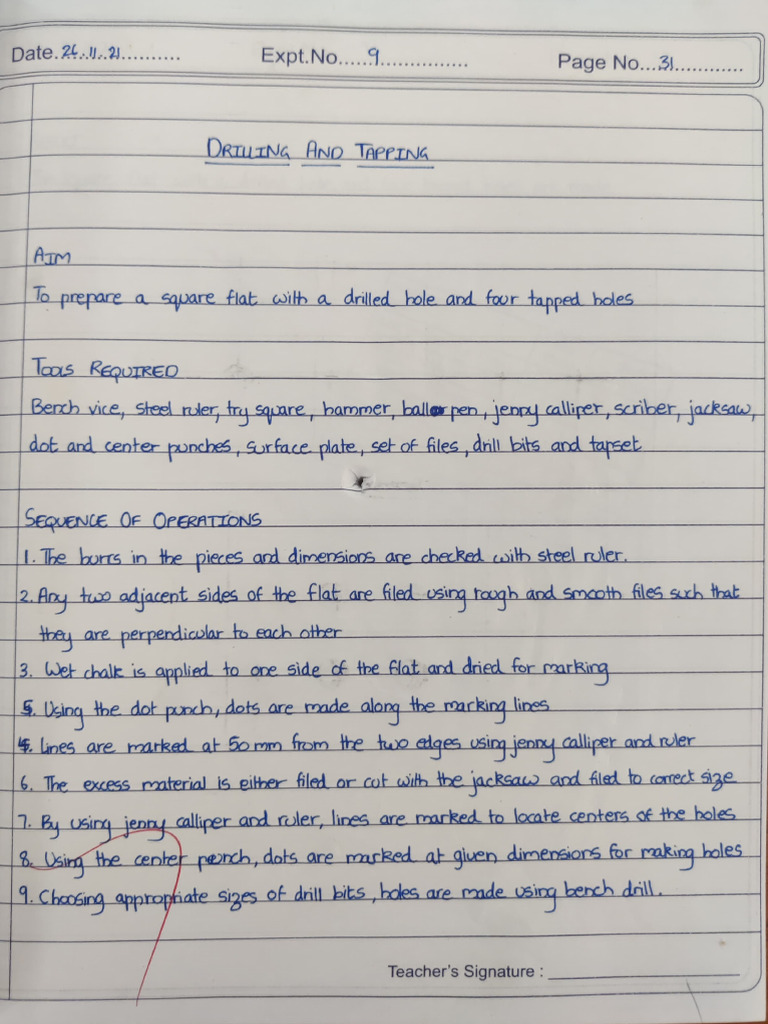 Date.26.11.21..........
Expt.No......9...............
Page No...31............
DRILLING AND TAPPING
AIM
To prepare a square flat with a drilled hole and four tapped holes
TOOLS REQUIRED
Bench vice, steel ruler, try square, hammer, ball pen, jenny calliper, scriber, jacksaw,
dot and center punches, surface plate, set of files, drill bits and tapset
SEQUENCE OF OPERATIONS
1. The burrs in the pieces and dimensions are checked with steel ruler.
2. Any two adjacent sides of the flat are filed using rough and smooth files such that
they are perpendicular to each other
3. Wet chalk is applied to one side of the flat and dried for marking
5. Using the dot punch, dots are made along the marking lines
4. Lines are marked at 50 mm from the two edges using jenny calliper and ruler
6. The excess material is either filed or cut with the jacksaw and filed to correct size
7. By using jenny calliper and ruler, lines are marked to locate centers of the holes
8. Using the center punch, dots are marked at given dimensions for making holes
9. Choosing appropriate sizes of drill bits, holes are made using bench drill.
Teacher's Signature : ____________________